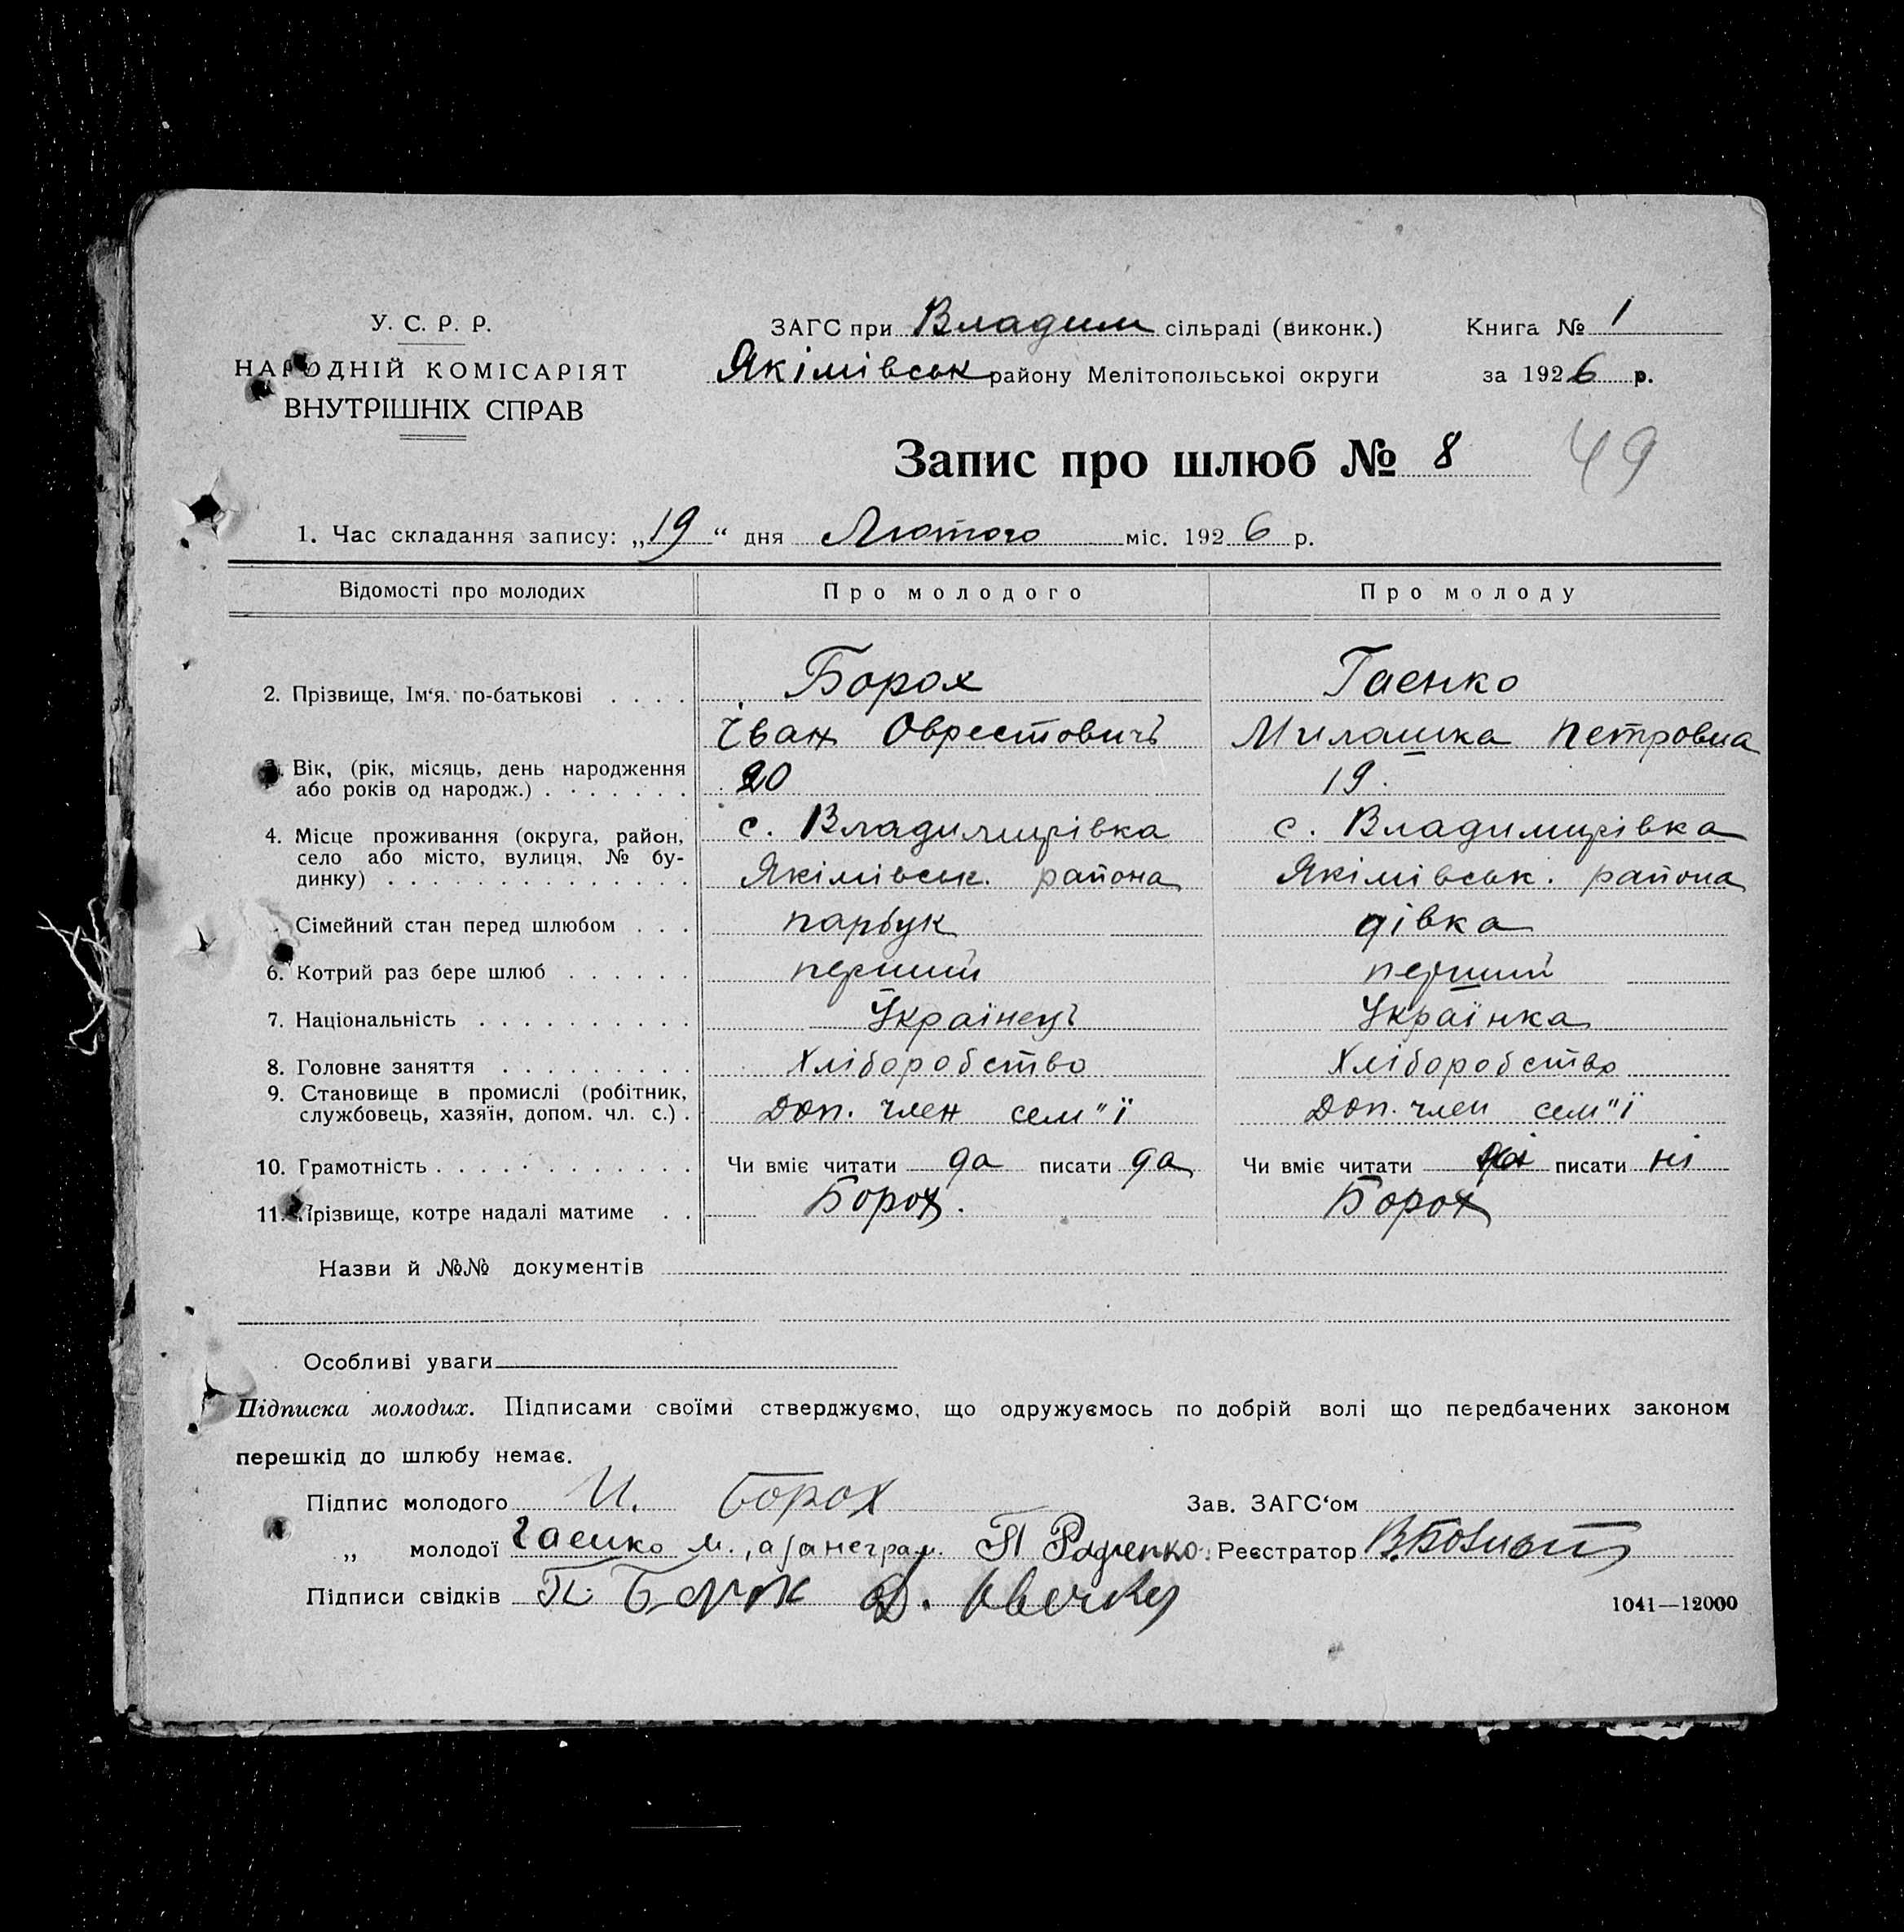 У. С. Р. Р.
НАРОДНІЙ КОМІСАРІЯТ
ВНУТРІШНІХ СПРАВ
ЗАГС при Владим сільраді (виконк.)
Якімівськ району Мелітопольськоі округи
Книга № 1
за 1926 р.
Запис про шлюб № 8
49
1. Час складання запису: „19“ дня Лютого міс. 1926 р.
Відомості про молодих Про молодого Про молоду
2. Прізвище, Ім‘я, по-батькові Борох Гаєнко
Іван Оврестовичъ Милашка Петровна
3. Вік, (рік, місяць, день народження
або років од народж.) 20 19.
4. Місце проживання (округа, район, с. Владимирівка с. Владимирівка
село або місто, вулиця, № бу-
динку) Якімівськ. района Якімівськ. района
Сімейний стан перед шлюбом парубук дівка
6. Котрий раз бере шлюб перший перший
7. Національність Украінець Українка
8. Головне заняття Хліборобство Хліборобство
9. Становище в промислі (робітник,
службовець, хазяїн, допом. чл. с.) Доп. член сем"ї Доп. член сем"ї
10. Грамотність Чи вміє читати да писати да Чи вміє читати писати ні
11. Прізвище, котре надалі матиме Борох. Борох
Назви й №№ документів
Особливі уваги
Підписка молодих. Підписами своїми стверджуємо, що одружуємось по добрій волі що передбачених законом
перешкід до шлюбу немає.
Підпис молодого И. Борох Зав. ЗАГС‘ом
„ молодої Гаенко М., а за неграм. П Радченко. Реєстратор
Підписи свідків П. Д.
1041—12000